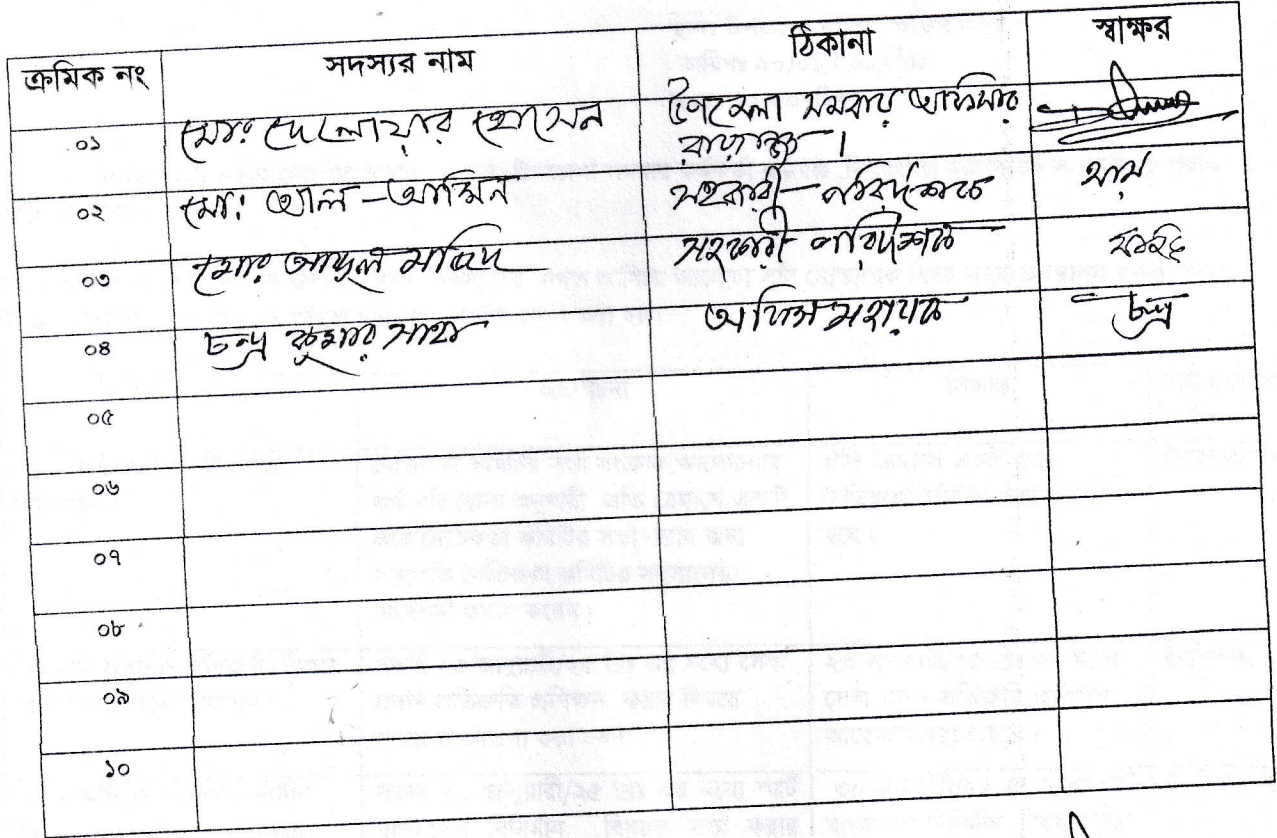 ক্রমিক নং সদস্যর নাম ঠিকানা স্বাক্ষর
০১ মোঃ দেলোয়ার হোসেন উপজেলা সমবায় অফিসার
০২ মোঃ আল-আমিন সহকারী-পরিদর্শক
০৩ মোঃ আব্দুল মজিদ সহকারী পরিদর্শক মজিদ
০৪ চন্দ্র কুমার সাহা অফিস সহায়ক চন্দ্র
০৫
০৬
০৭
০৮
০৯
১০